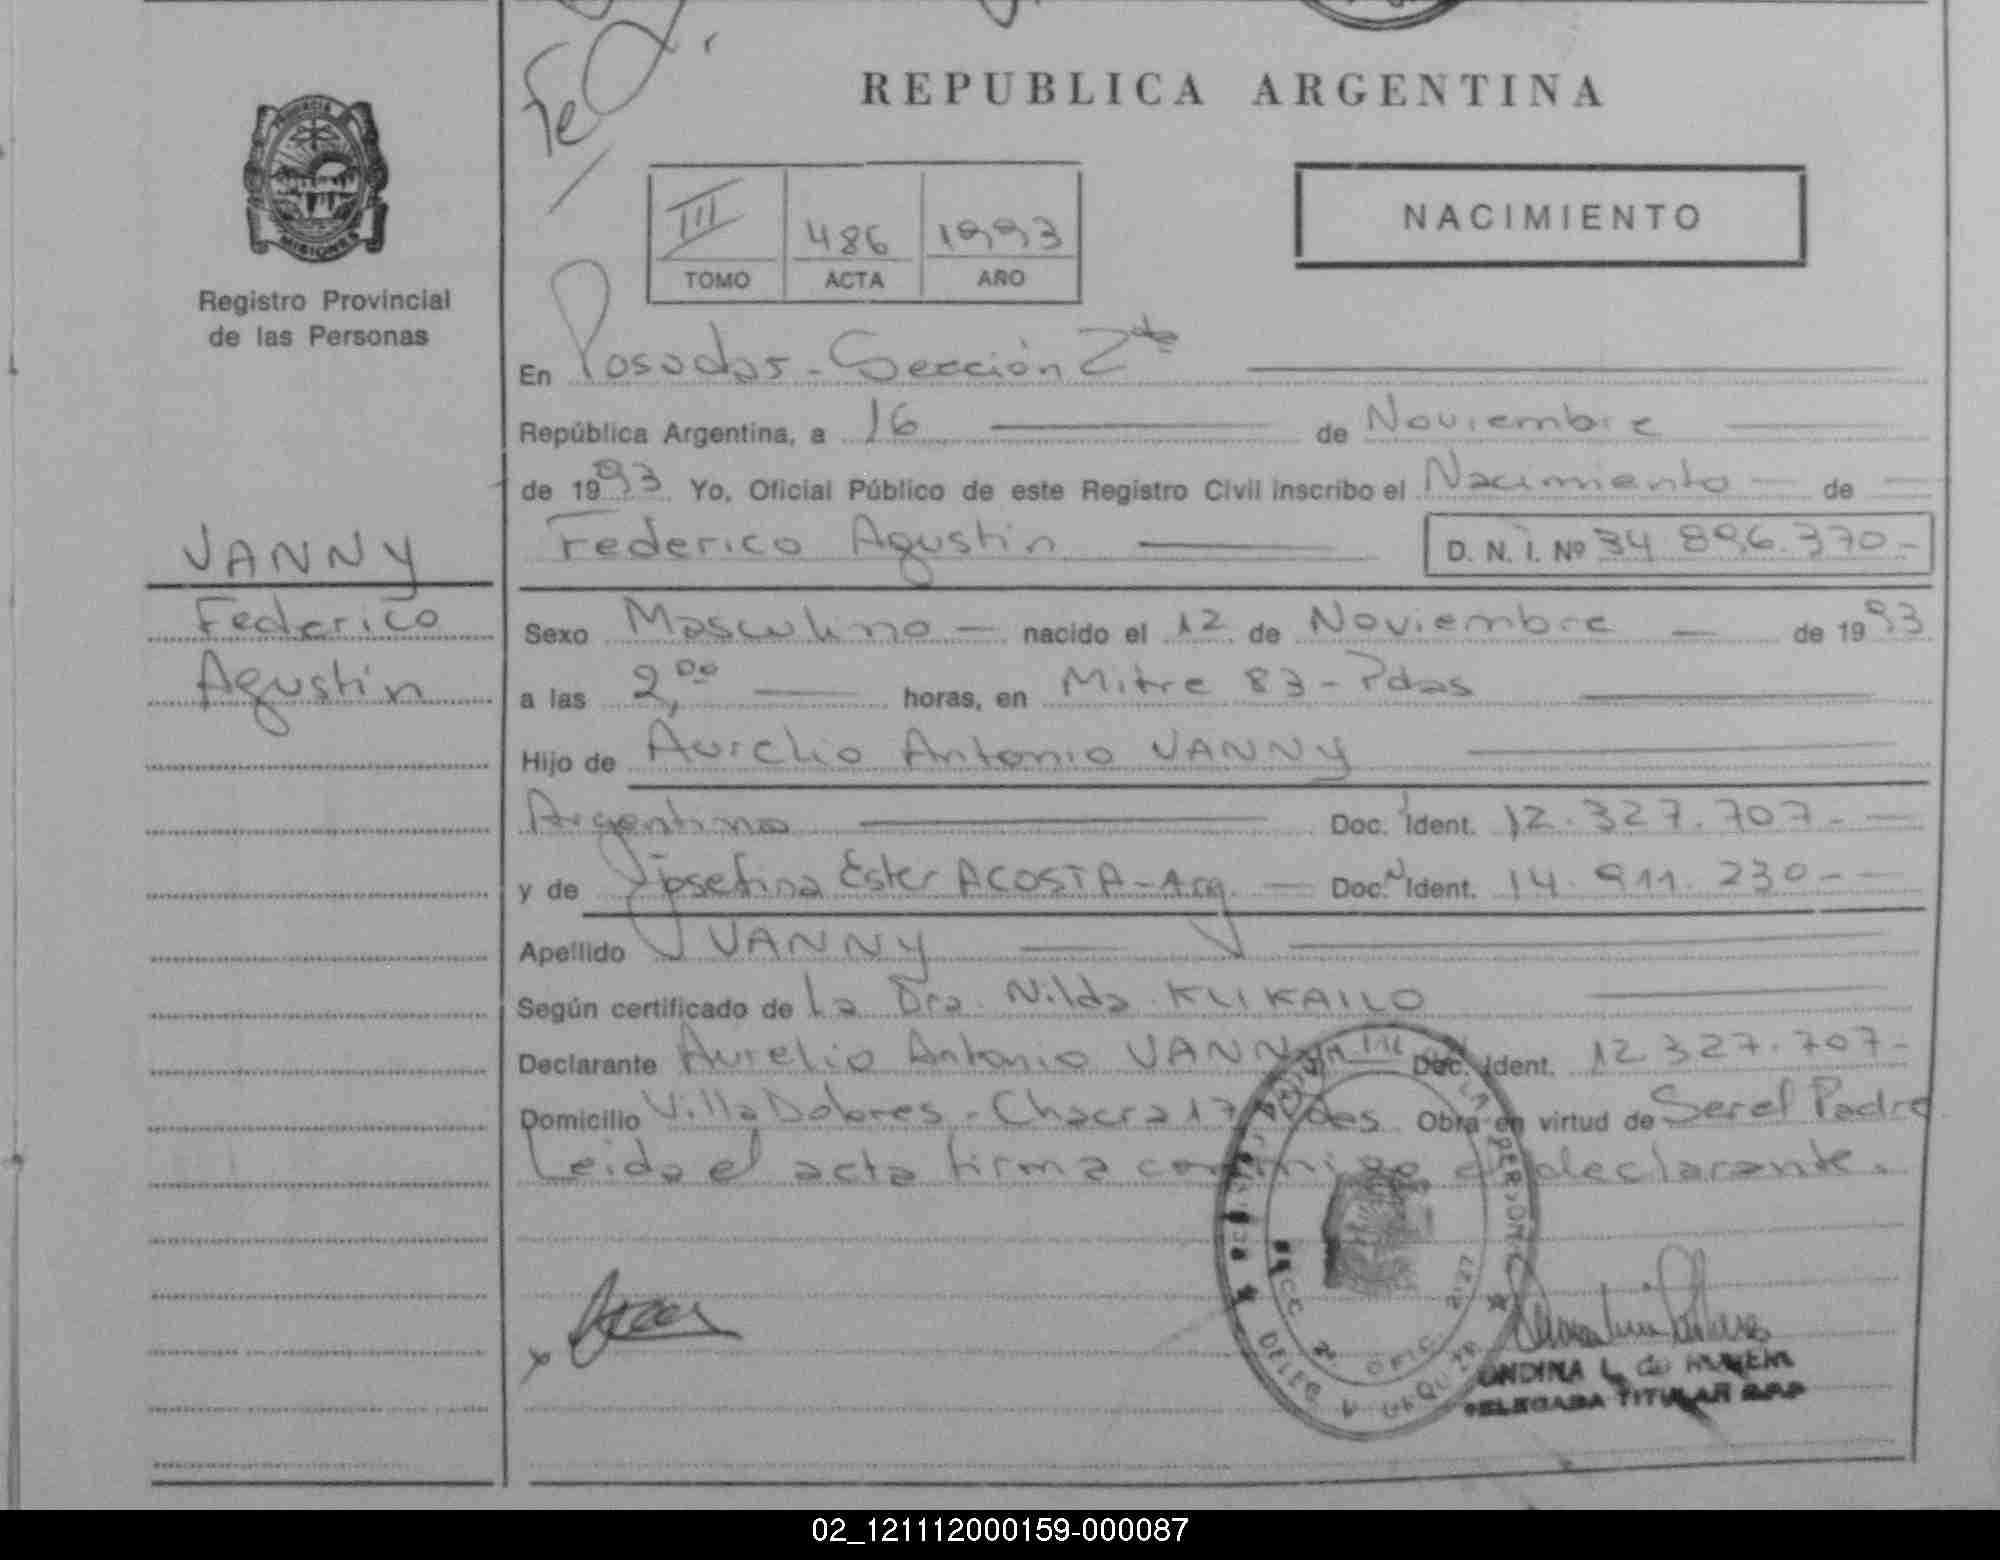 REPUBLICA ARGENTINA
PROVINCIA
MISIONES
Registro Provincial
de las Personas
III 486 1993
TOMO ACTA AÑO
NACIMIENTO
En Posadas - Sección 2da
República Argentina, a 16 de Noviembre
de 1993 Yo, Oficial Público de este Registro Civil inscribo el Nacimiento de
VANNY
Federico
Agustín
Federico Agustín D. N. I. Nº 34.896.370-
Sexo Masculino - nacido el 12 de Noviembre - de 1993
a las 2,00 horas, en Mitre 83 - Pdas
Hijo de Aurelio Antonio VANNY
Argentino Doc. Ident. 12.327.707-
y de Josefina Ester ACOSTA - Arg. Doc. Ident. 14.911.230-
Apellido VANNY
Según certificado de La Dra. Nilda KLIKAILO
Declarante Aurelio Antonio VANNY Doc. Ident. 12.327.707-
Domicilio Villa Dolores - Chacra Obra en virtud de Ser el Padre
Leida el acta firma conmigo el declarante.
SECC 2ª OFIC
ONDINA L. de
DELEGADA TITULAR
02_121112000159-000087